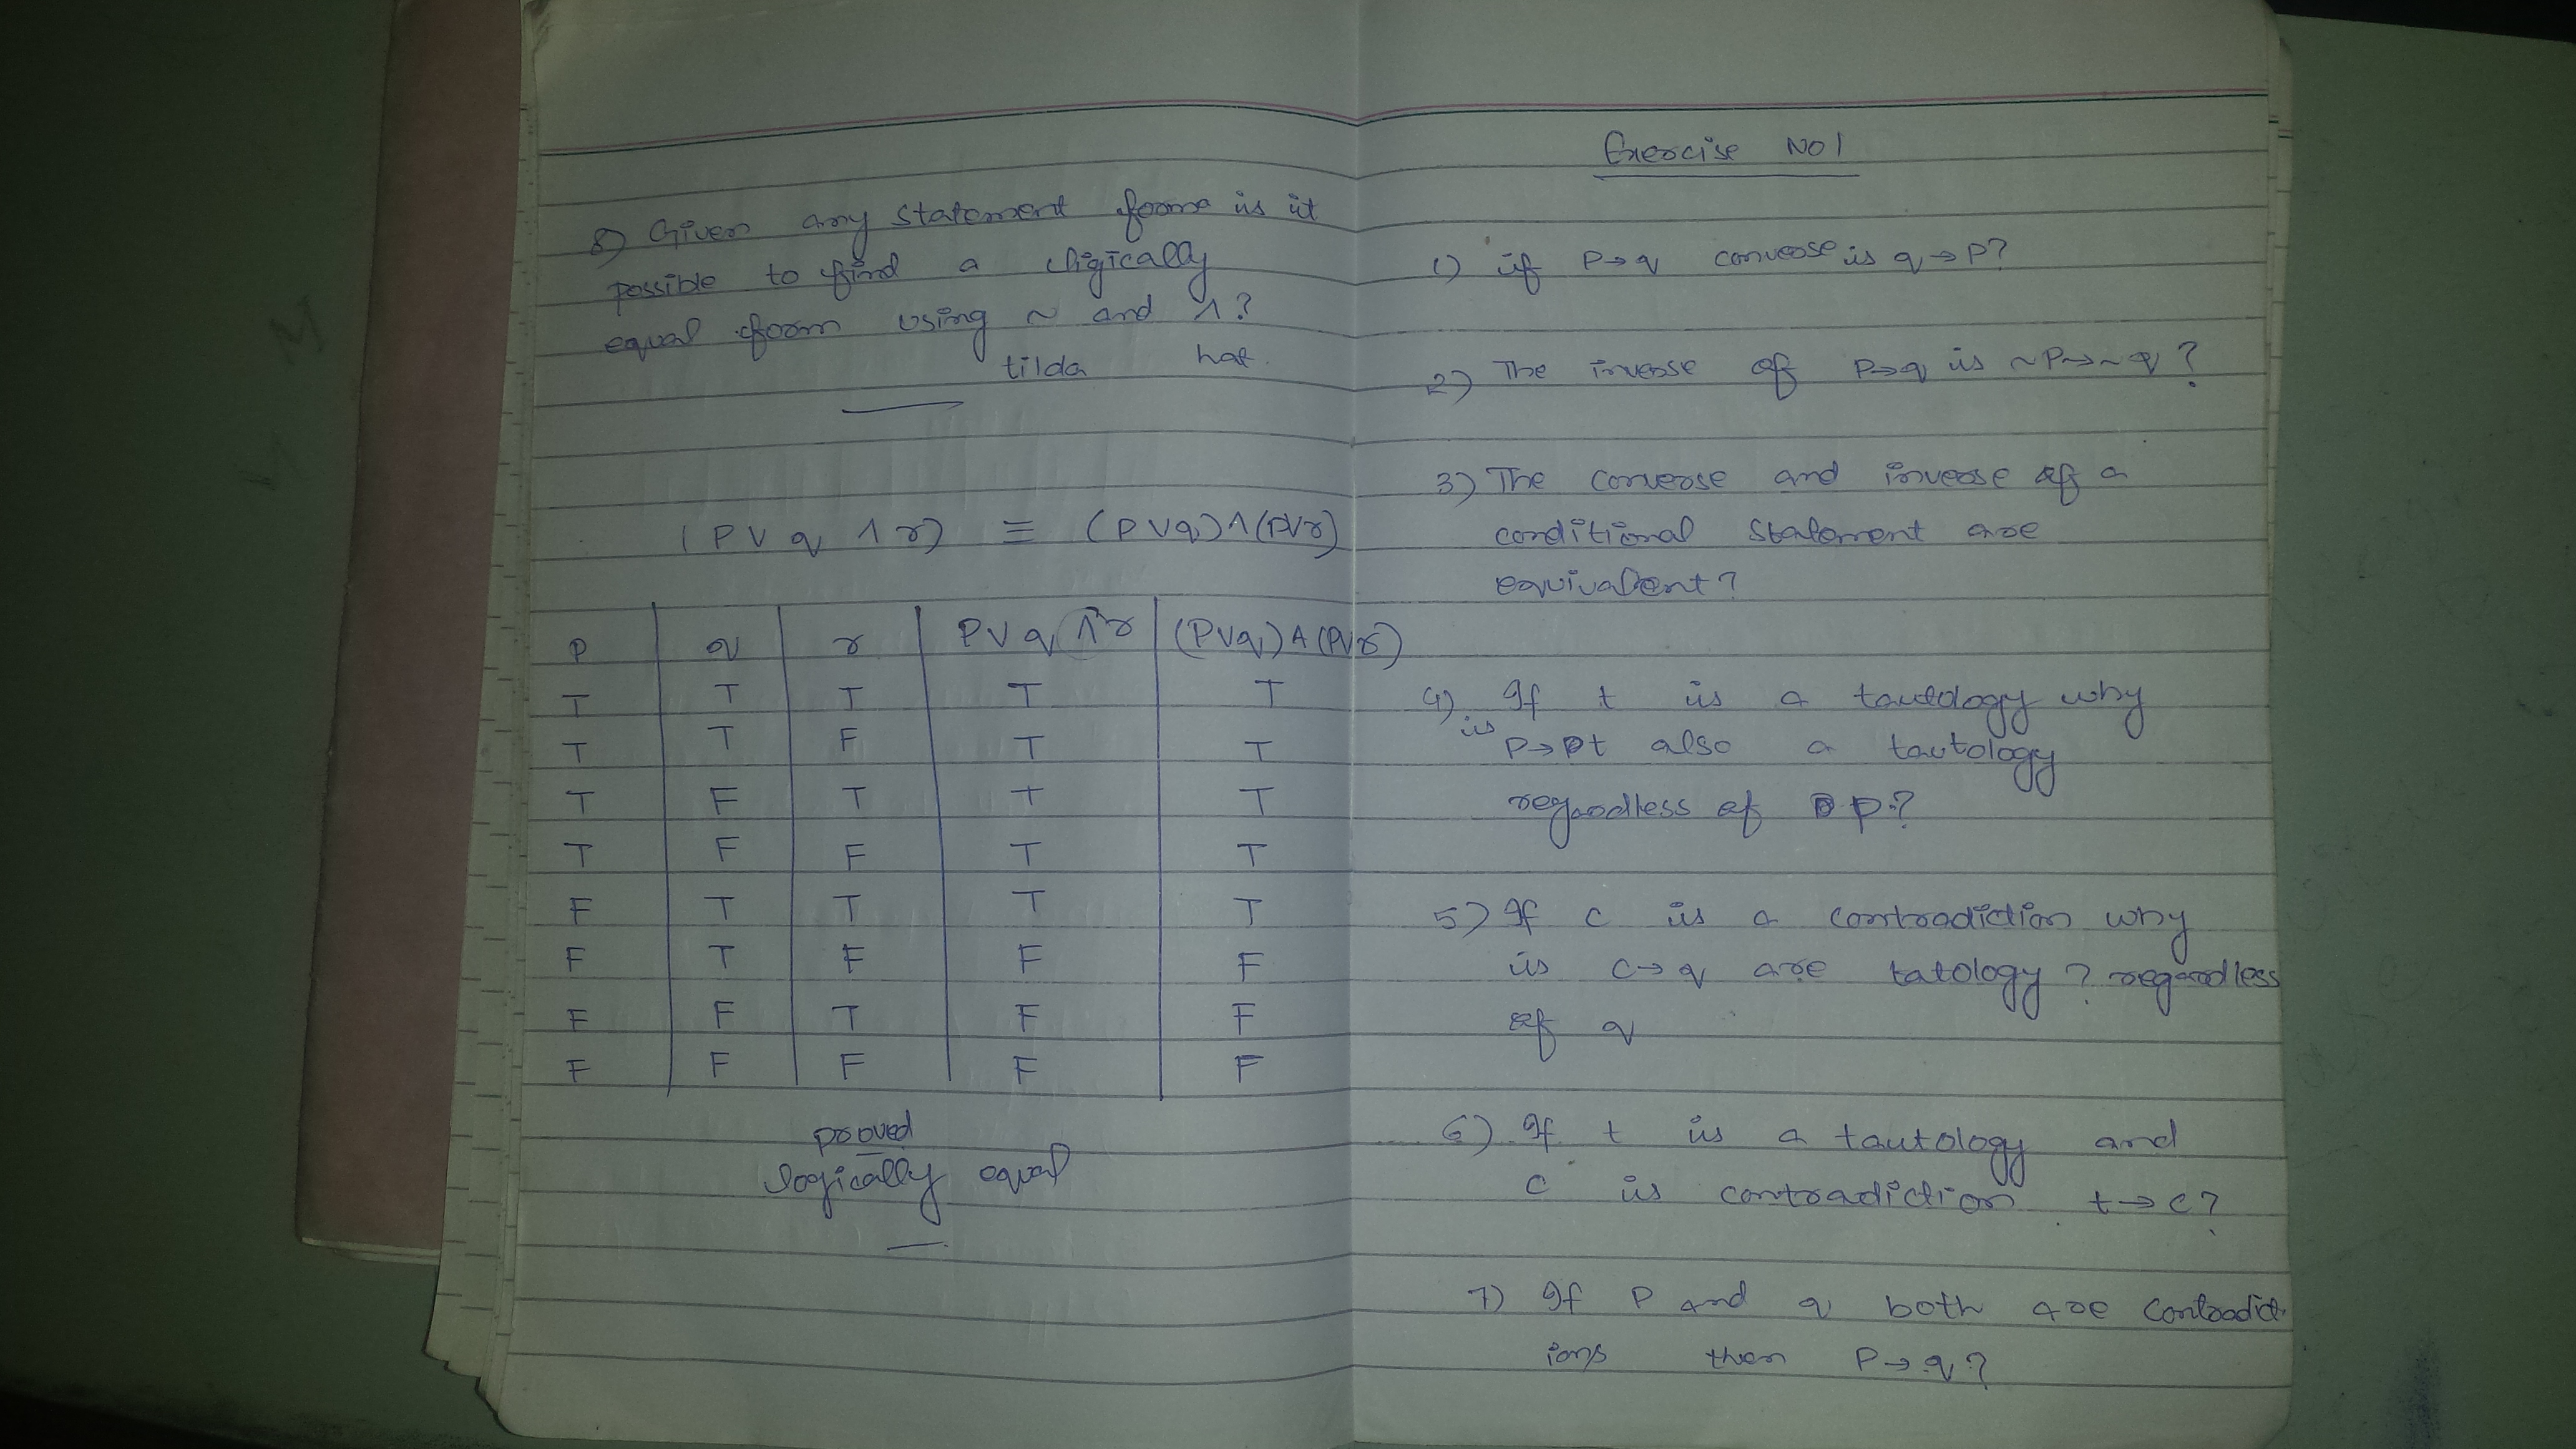 8) Given any statement forms is it
possible to find a cligically
equal form using ~ and ∧?
tilda hat.
(P∨q ∧ r) ≡ (P∨q)∧(P∨r)
P q r P∨q ∧ r (P∨q)∧(P∨r)
T T T T T
T T F T T
T F T T T
T F F T T
F T T T T
F T F F F
F F T F F
F F F F F
proved
logically equal
Exercise No1
1) if P→q converse is q→P?
2) The inverse of P→q is ~P→~q?
3) The converse and inverse of a
conditional statement are
equivalent?
4) If t is a tautology why
is P→t also a tautology
regardless of p?
5) If c is a contradiction why
is c→q are tatology? regardless
of q
6) If t is a tautology and
c is contradiction t→c?
7) If P and q both are Contradict
ions then P→q?